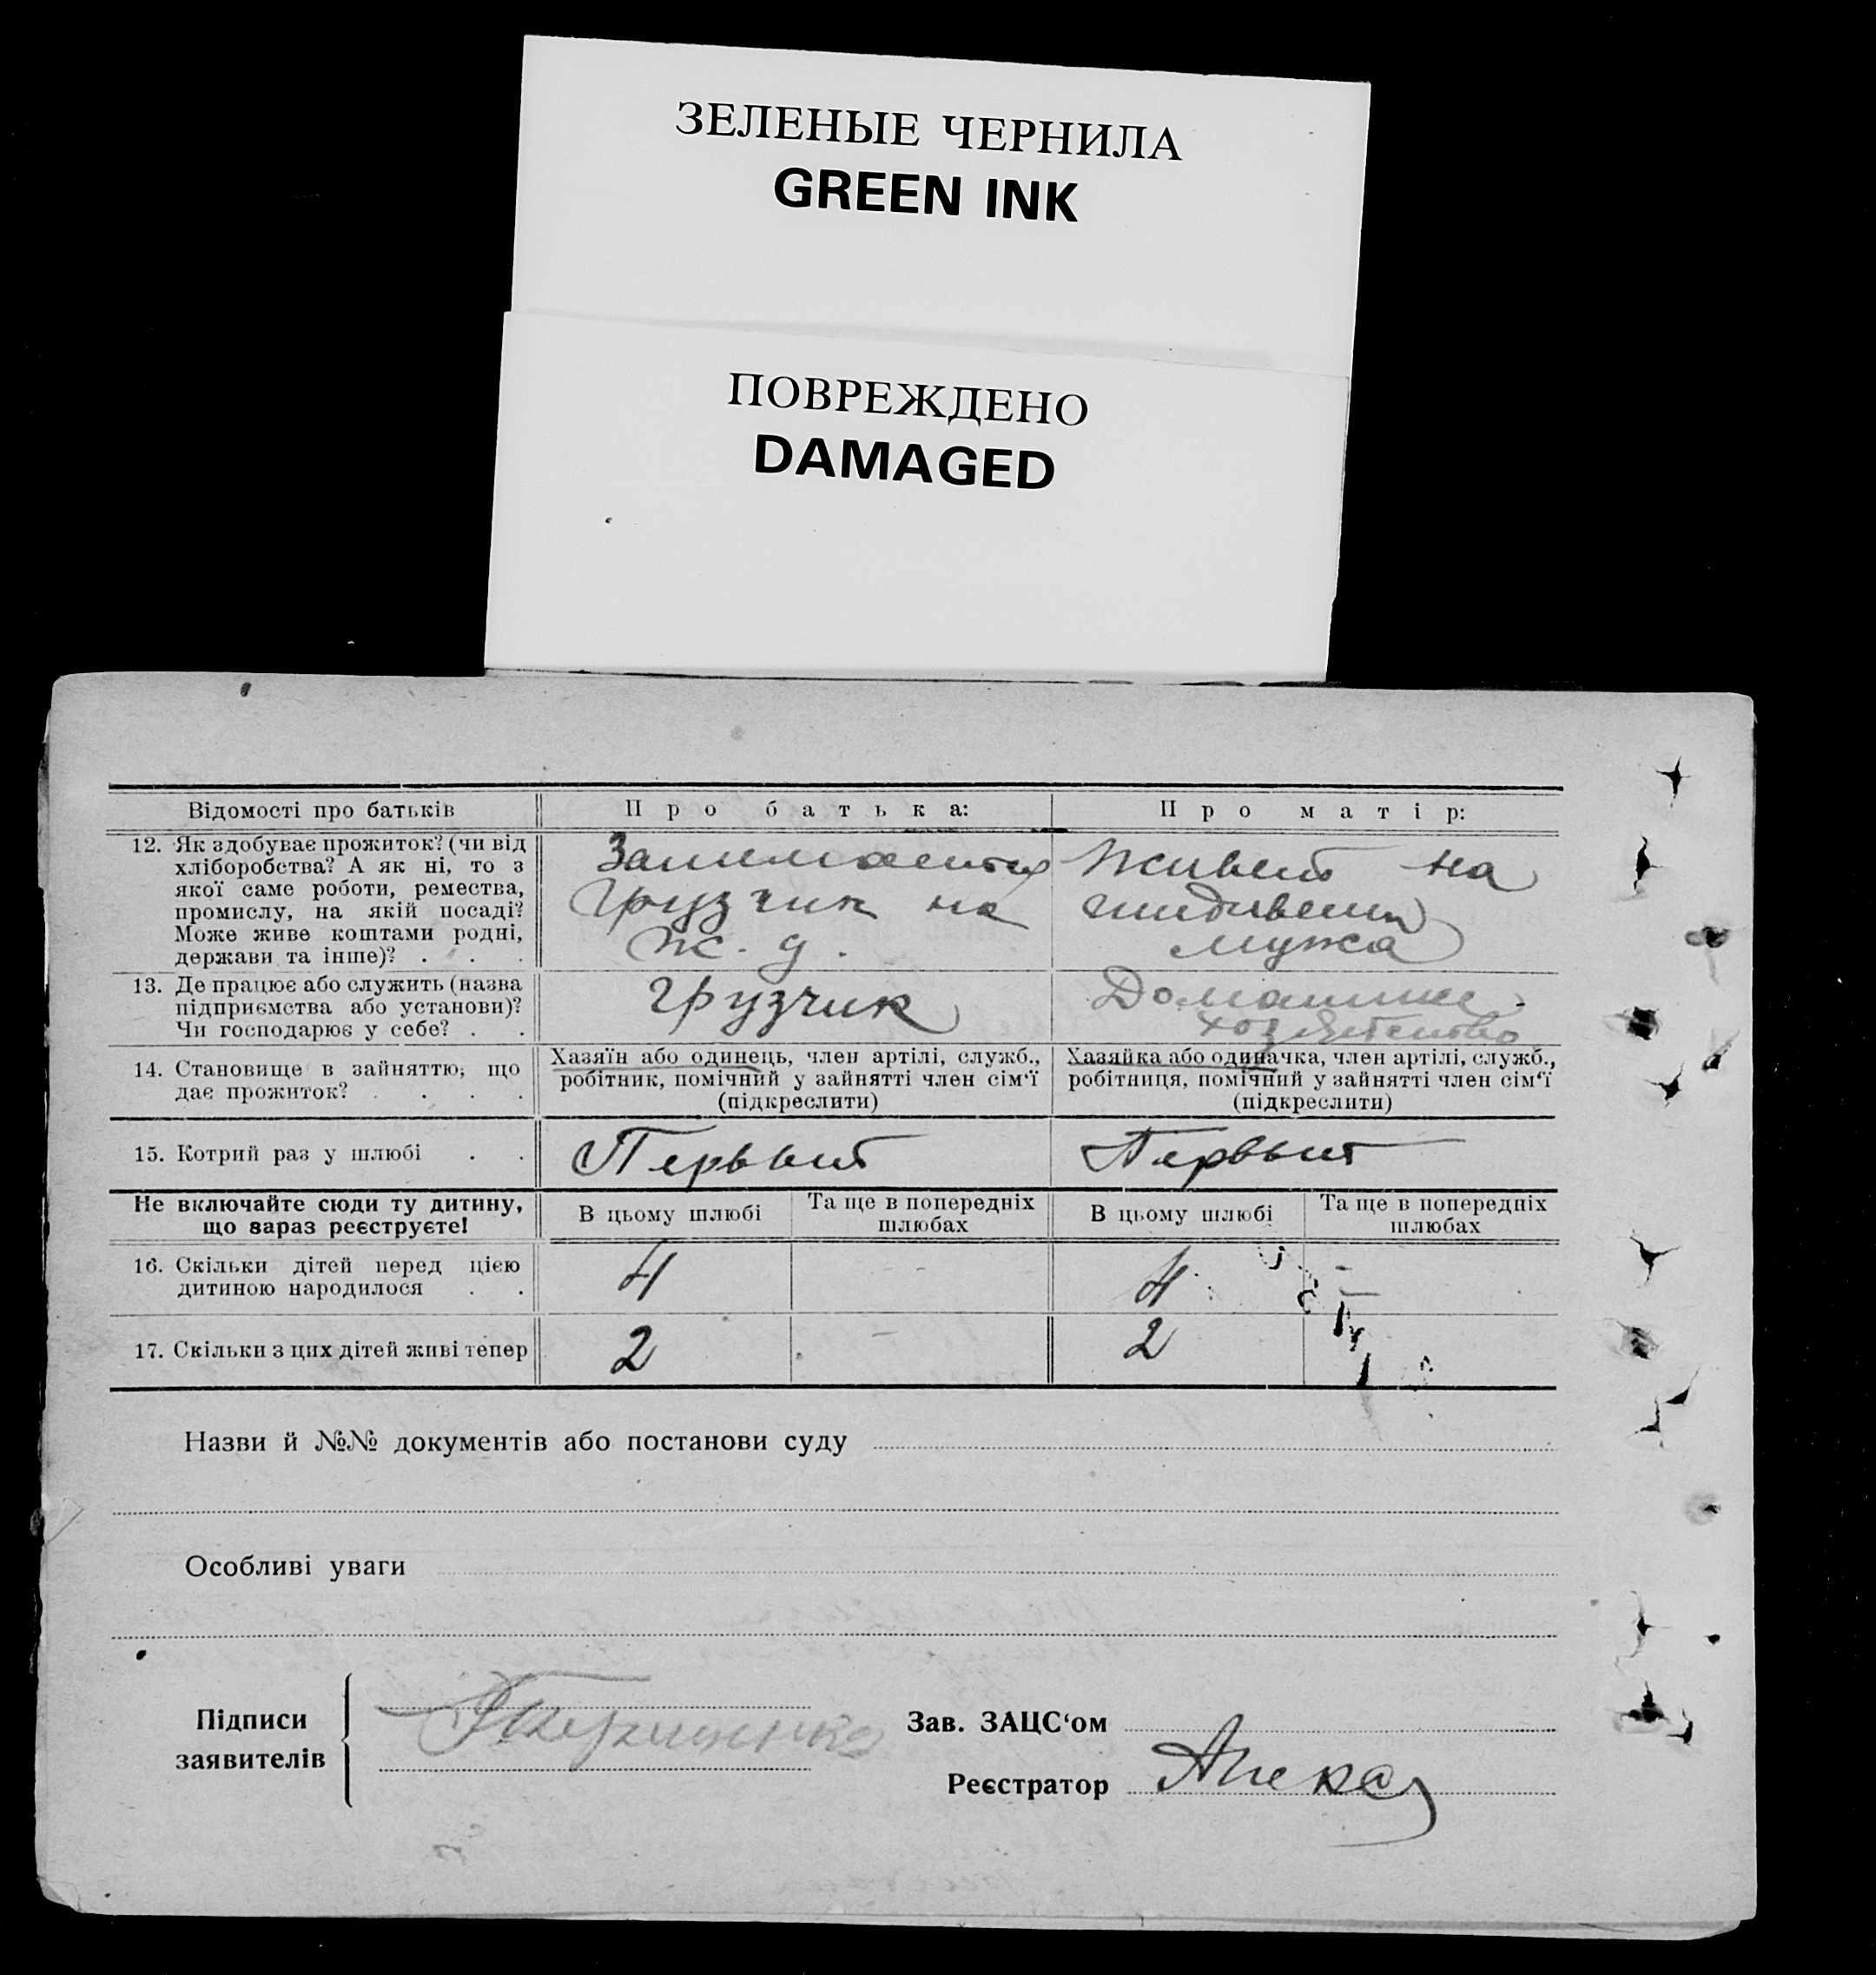 ЗЕЛЕНЫЕ ЧЕРНИЛА
GREEN INK
ПОВРЕЖДЕНО
DAMAGED
Відомості про батьків
Про батька:
Про матір:
12. Як здобуває прожиток? (чи від
хліборобства? А як ні, то з
якої саме роботи, ремества,
промислу, на якій посаді?
Може живе коштами родні,
держави та інше)? . . .
Грузчик на
ж. д.
Живет на
иждивении
мужа
13. Де працює або служить (назва
підприємства або установи)?
Чи господарює у себе? . .
Грузчик
Домашнее
хозяйство
14. Становище в зайняттю; що
дає прожиток? . . . .
Хазяїн або одинець, член артілі, служб.,
робітник, помічний у зайнятті член сім'ї
(підкреслити)
Хазяйка або одиначка, член артілі, служб.,
робітниця, помічний у зайнятті член сім'ї
(підкреслити)
15. Котрий раз у шлюбі . .
Первый
Первый
Не включайте сюди ту дитину,
що зараз реєструєте!
В цьому шлюбі
Та ще в попередніх
шлюбах
В цьому шлюбі
Та ще в попередніх
шлюбах
16. Скільки дітей перед цією
дитиною народилося . .
4
4
17. Скільки з цих дітей живі тепер
2
2
Назви й №№ документів або постанови суду
Особливі уваги
Підписи
заявителів
Зав. ЗАЦС'ом
Реєстратор